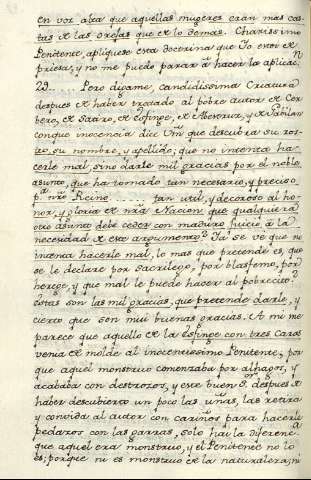 en voz alta que aquellas mugeres eran mas cas-
tas de las orejas que de lo demas. Charissimo
Penitente, apliquese esta doctrina que Io estoi de
priesa, y no me puedo parar à hacer la aplicacⁿ
29.. Pero digame, candidissima Criatura
despues de haber tratado al pobre autor de Cer-
bero, de Satiro, de esfinge, de
conque inocencia dice Vm̃ que descubra su ros-
tro, su nombre, y apellido; que no intenta ha-
cerle mal, sino darle mil gracias por el noble
asunto, que ha tomado tan necesario, y preciso
pᵃ nr̃o Reino ........ tan util, y decoroso al ho-
nor, y gloria de nr̃a Nacion que qualquiera
otro asunto debe ceder con maduro juicio à la
necesidad de este argumento? Ya se ve que no
intenta hacerle mal, lo mas que pretende es, que
se le declare por sacrilego, por blasfemo, por
herege, y que mal le puede hacer al pobrecito?
Estas son las mil gracias, que pretende darle, y
cierto que son mui buenas gracias. A mi me
parece que aquello de la esfinge con tres caras
venia de molde al inocentissimo Penitente, por
que aquel monstruo comenzaba por alhagos, y
acababa con destrozos, y este buen Sʳ. despues de
haber descubierto un poco las uñas, las retira
y convida al autor con cariños para hacerle
pedazos con las garras, solo hai la diferencᵃ
que aquel era monstruo, y el Penitente no lo
es; porque ni es monstruo de la naturaleza, ni